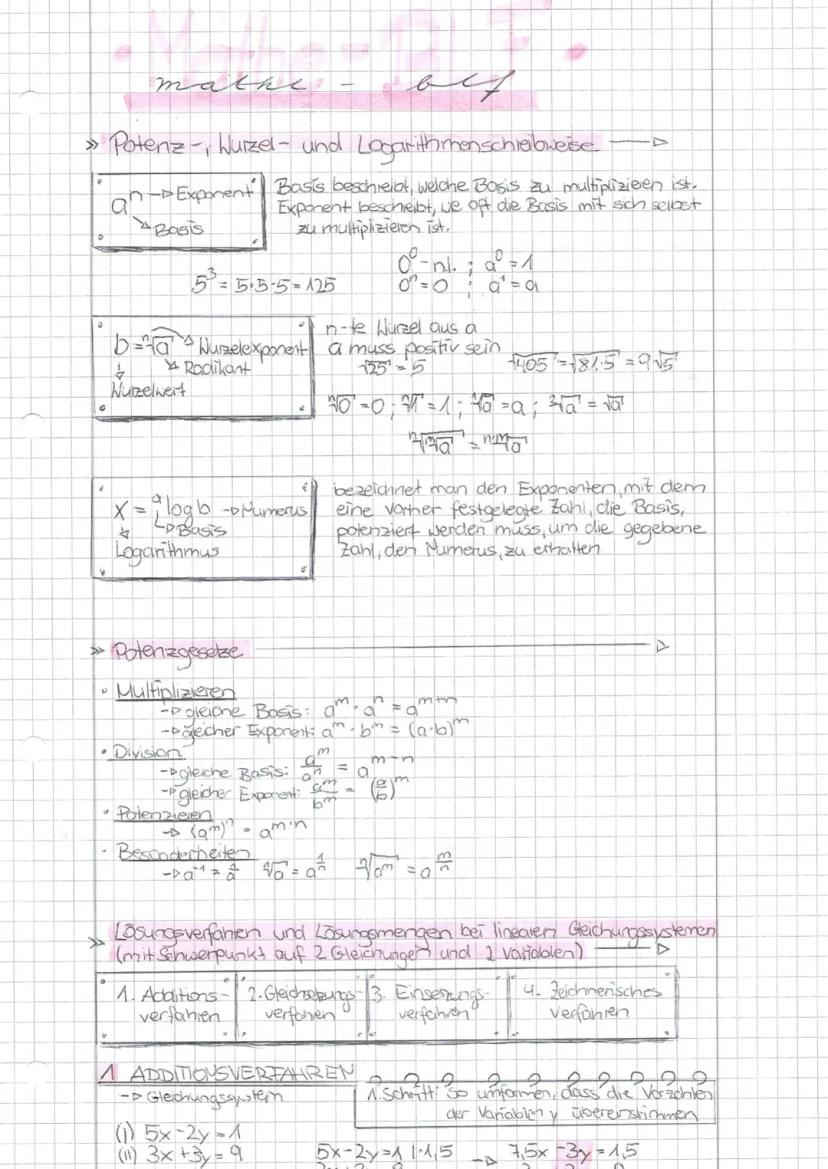 mathe - blf
» Potenz-, Wurzel- und Logarithmenschreibweise
aⁿ → Exponent
Basis
Basis beschreibt, welche Basis zu multiplizieren ist.
Exponent beschreibt, wie oft die Basis mit sich selbst
zu multiplizieren ist.
5³ = 5·5·5 = 125
0⁰ - n.l. ; a⁰ = 1
0ⁿ = 0 ; a¹ = a
b = ⁿ√a Wurzelexponent
Radikant
Wurzelwert
n-te Wurzel aus a
a muss positiv sein
√25 = 5
√405 = √81·5 = 9√5
ⁿ√0 = 0 ; ⁿ√1 = 1 ; ¹√a = a ; ²√a = √a
ⁿ√ᵐ√a = ⁿ·ᵐ√a
x = ᵃlog b → Numerus
Basis
Logarithmus
bezeichnet man den Exponenten, mit dem
eine vorher festgelegte Zahl, die Basis,
potenziert werden muss, um die gegebene
Zahl, den Numerus, zu erhalten
» Potenzgesetze
• Multiplizieren
→ gleiche Basis: aᵐ · aⁿ = aᵐ⁺ⁿ
→ gleicher Exponent: aᵐ · bᵐ = (a·b)ᵐ
• Division
→ gleiche Basis: aᵐ/aⁿ = aᵐ⁻ⁿ
→ gleicher Exponent: aᵐ/bᵐ = (a/b)ᵐ
• Potenzieren
→ (aᵐ)ⁿ = aᵐ·ⁿ
• Besonderheiten
→ a⁻¹ = 1/a ⁿ√a = a^(1/n) ⁿ√aᵐ = a^(m/n)
» Lösungsverfahren und Lösungsmengen bei linearen Gleichungssystemen
(mit Schwerpunkt auf 2 Gleichungen und 2 Variablen)
1. Additions-
verfahren
2. Gleichsetzungs-
verfahren
3. Einsetzungs-
verfahren
4. Zeichnerisches
Verfahren
1 ADDITIONSVERFAHREN
→ Gleichungssystem
1. Schritt: so umformen, dass die Vorzahlen
der Variablen y übereinstimmen
(I) 5x - 2y = 1
(II) 3x + 3y = 9
5x - 2y = 1 | · 1,5 → 7,5x - 3y = 1,5